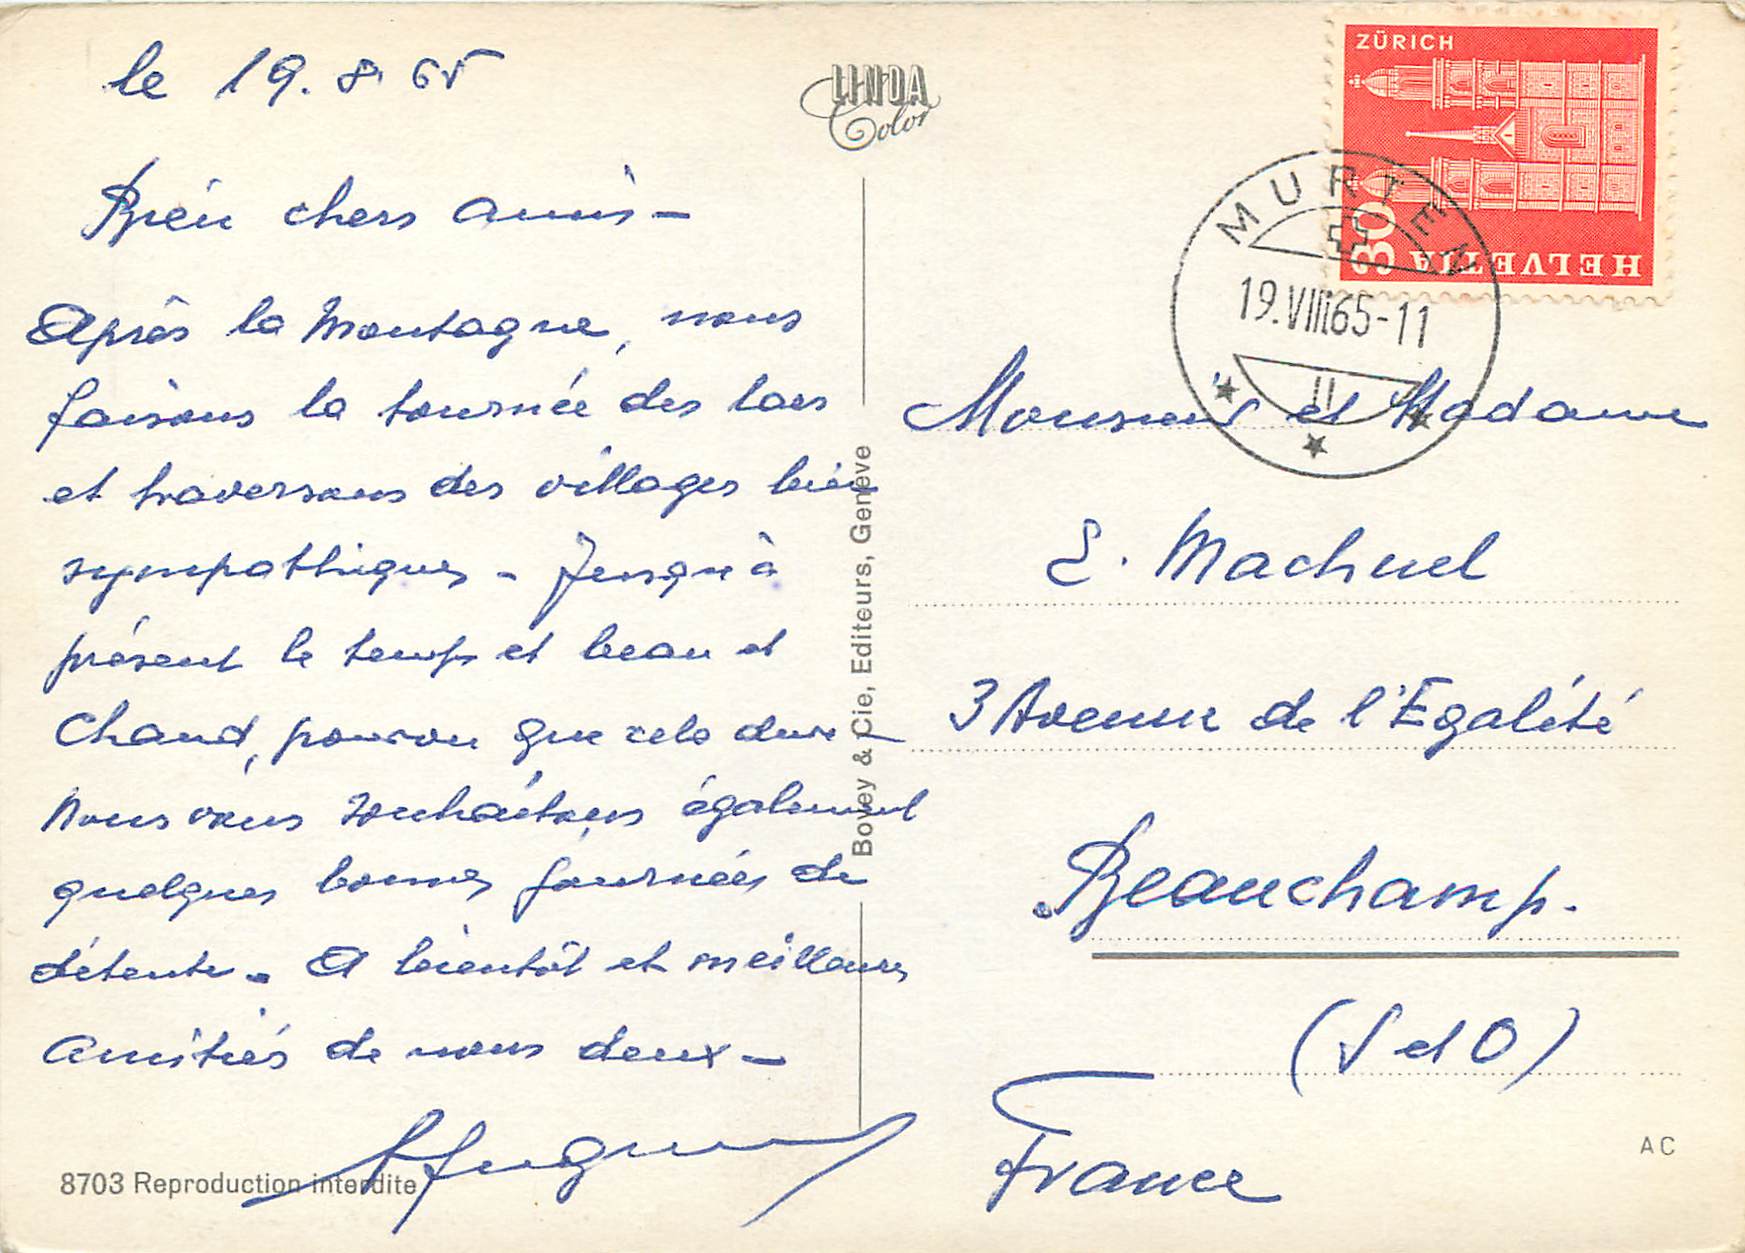 le 19. 8. 65
Bien chers amis -
Après la Montagne, nous
faisons la tournée des lacs
et traversons des villages bien
sympathiques - Jusqu'à
présent le temps et beau et
chaud, pourvu que cela dure -
Nous vous souhaitons également
quelques bonnes journées de
détente. A bientôt et meilleures
amitiés de nous deux -
8703 Reproduction interdite
LINDA
Color
Bovey & Cie, Editeurs, Genève
ZÜRICH
30
HELVETIA
MURTEN
19.VIII65-11
Monsieur et Madame
E. Machuel
3 Avenue de l'Egalité
Beauchamp.
(S et O)
France
AC